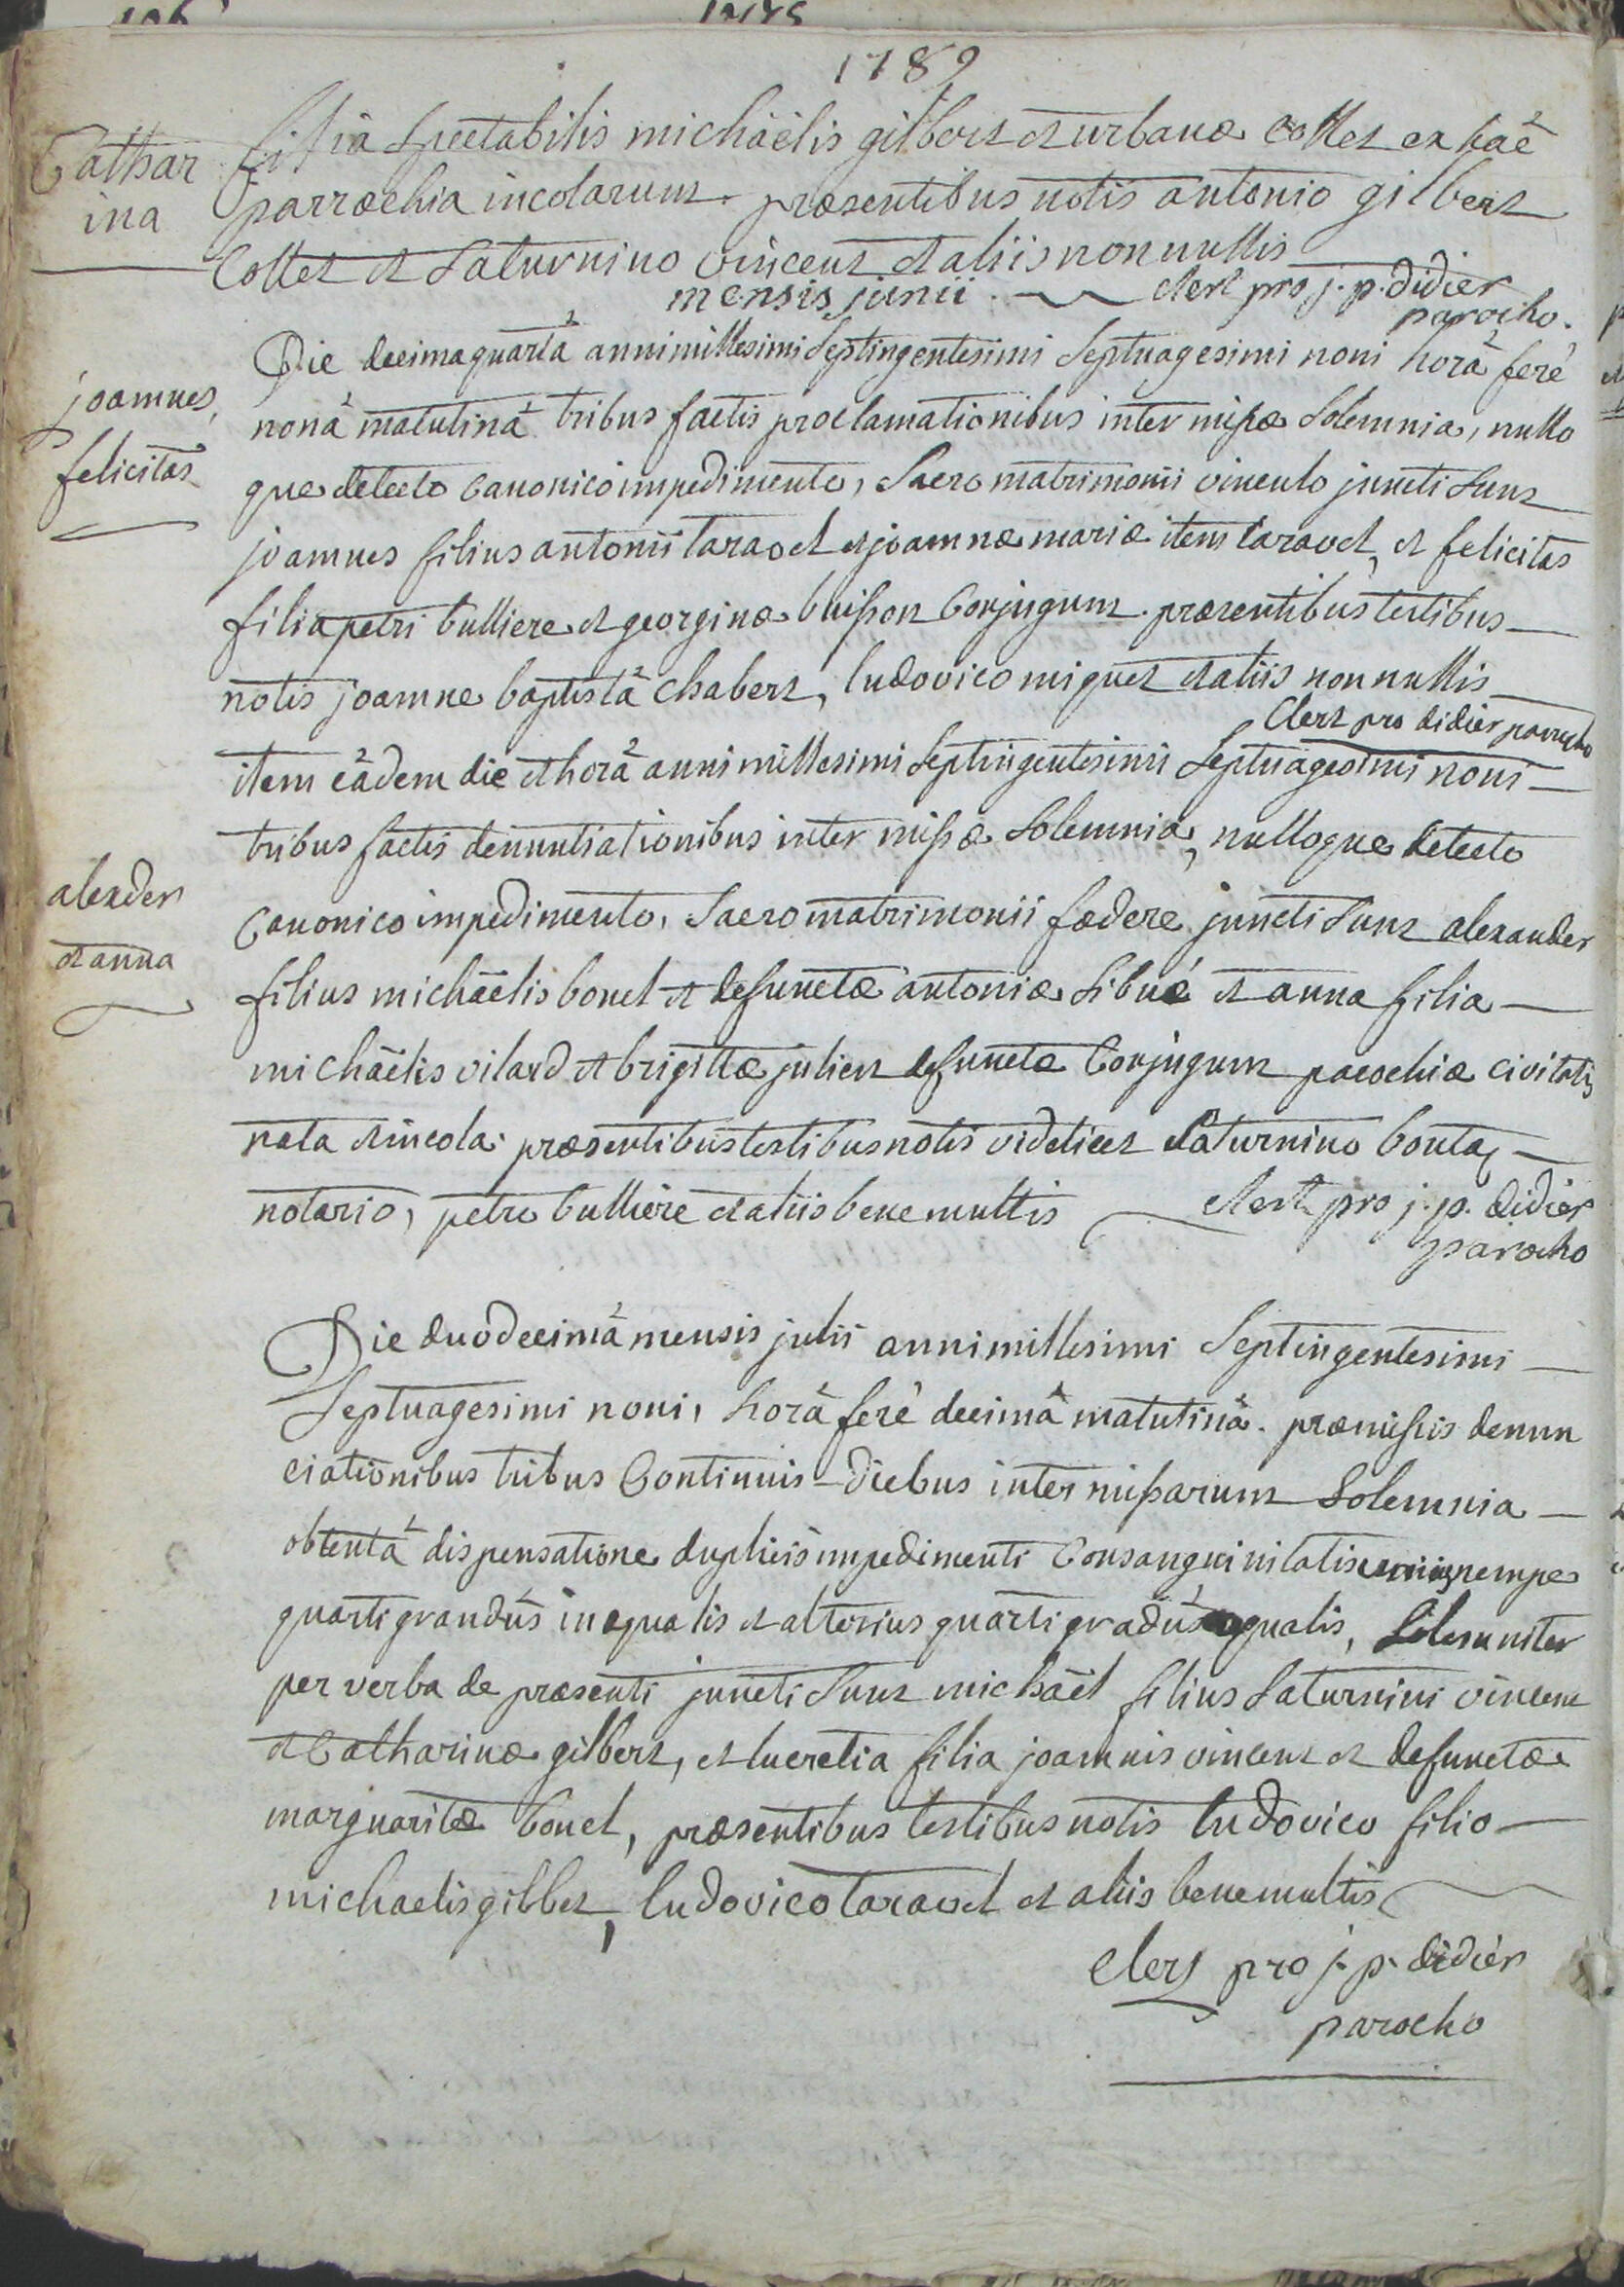 1789
Cathar
ina
filia spectabilis michaëlis gilbert et urbanæ collet ex hac
parrochia incolarum. præsentibus notis antonio gilbert
Collet et Saturnino vincent et aliis non nullis
mensis junii. clert pro j. p. didier
parocho.
joannes,
felicitas
Die decima quartâ anni millesimi Septingentesimi Septuagesimi noni horâ ferè
nonâ matutinâ tribus factis proclamationibus inter missæ Solemnia, nullo
que detecto Canonico impedimento, Sacro matrimonii vinculo juncti Sunt
joannes filius antonii taravel et joannæ mariæ item taravel, et felicitas
filia petri bulliere et georginæ buisson Conjugum. præsentibus testibus
notis joanne baptistâ chabert, ludovico miguet et aliis non nullis
Clert pro didier parocho
item eâdem die et horâ anni millesimi Septingentesimi Septuagesimi noni
tribus factis denuntiationibus inter missæ Solemnia, nulloque detecto
alexder
et anna
Canonico impedimento, Sacro matrimonii fœdere juncti Sunt alexander
filius michaëlis bonel et defunctæ antoniæ Sibué et anna filia
michaëlis vilard et brigittæ julien defunctæ Conjugum paeochiæ civitatis
nata et incola. præsentibus testibus notis videlicet Saturnino
notario, petro bulliere et aliis bene multis clert pro j. p. didier
parocho
Die duodecimâ mensis julii anni millesimi Septingentesimi
Septuagesimi noni, horâ ferè decimâ matutinâ. præmissis denun
ciationibus tribus Continuis diebus inter missarum Solemnia
obtentâ dispensatione duplicis impedimenti Consanguinitatis unius nempe
quarti grandûs inæqualis et alterius quarti gradûs æqualis, Solemniter
per verba de præsenti juncti Sunt michaël filius Saturnini vincent
et Catharinæ gilbert, et lucretia filia joannis vincent et defunctæ
marguaritæ bonel, præsentibus testibus notis ludovico filio
michaelis gilbet, ludovico taravel et aliis bene multis
Clert pro j. p. didier
parocho